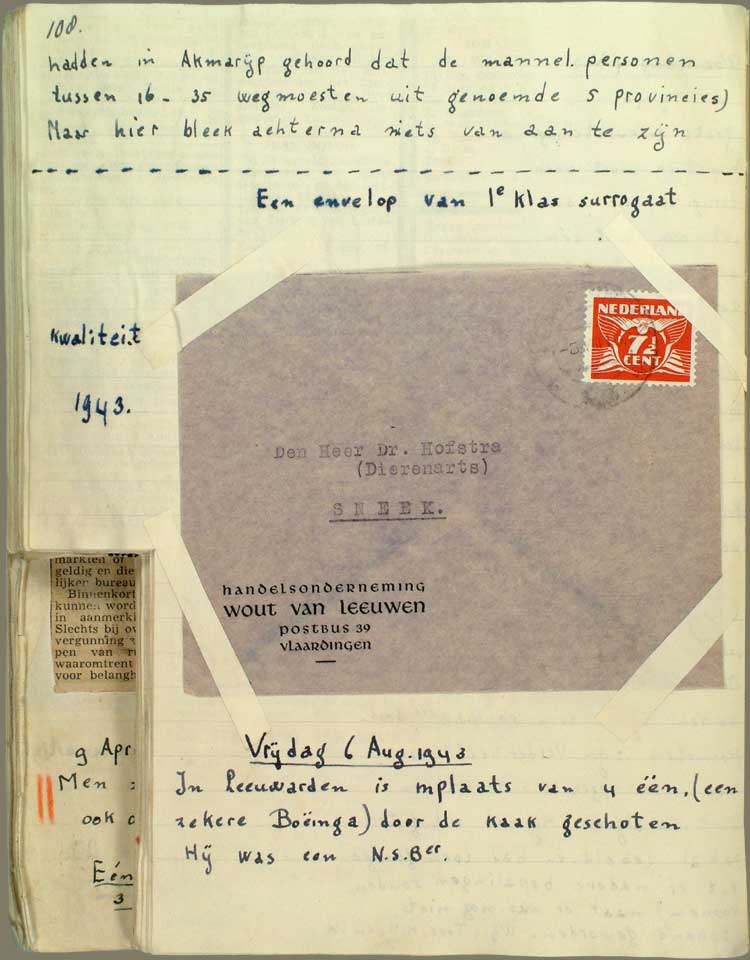 108.
hadden in Akmarijp gehoord dat de mannel. personen
tussen 16 - 35 wegmoesten uit genoemde 5 provincies)
Maar hier bleek achterna niets van aan te zijn
Een envelop van 1e klas surrogaat
kwaliteit
1943.
NEDERLAN
7½
CENT
Den Heer Dr. Hofstra
(Dierenarts)
SNEEK.
handelsonderneming
wout van leeuwen
postbus 39
vlaardingen
markten of
geldig en die
lijker bureau
Binnenkort
kunnen word
in aanmerki
Slechts bij ov
vergunning
pen van r
waaromtrent
voor belangh
9 Apr
Men
ook
Eén
3
Vrijdag 6 Aug. 1943
In Leeuwarden is inplaats van 4 één, (een
zekere Boëinga) door de kaak geschoten
Hij was een N.S.Ber.